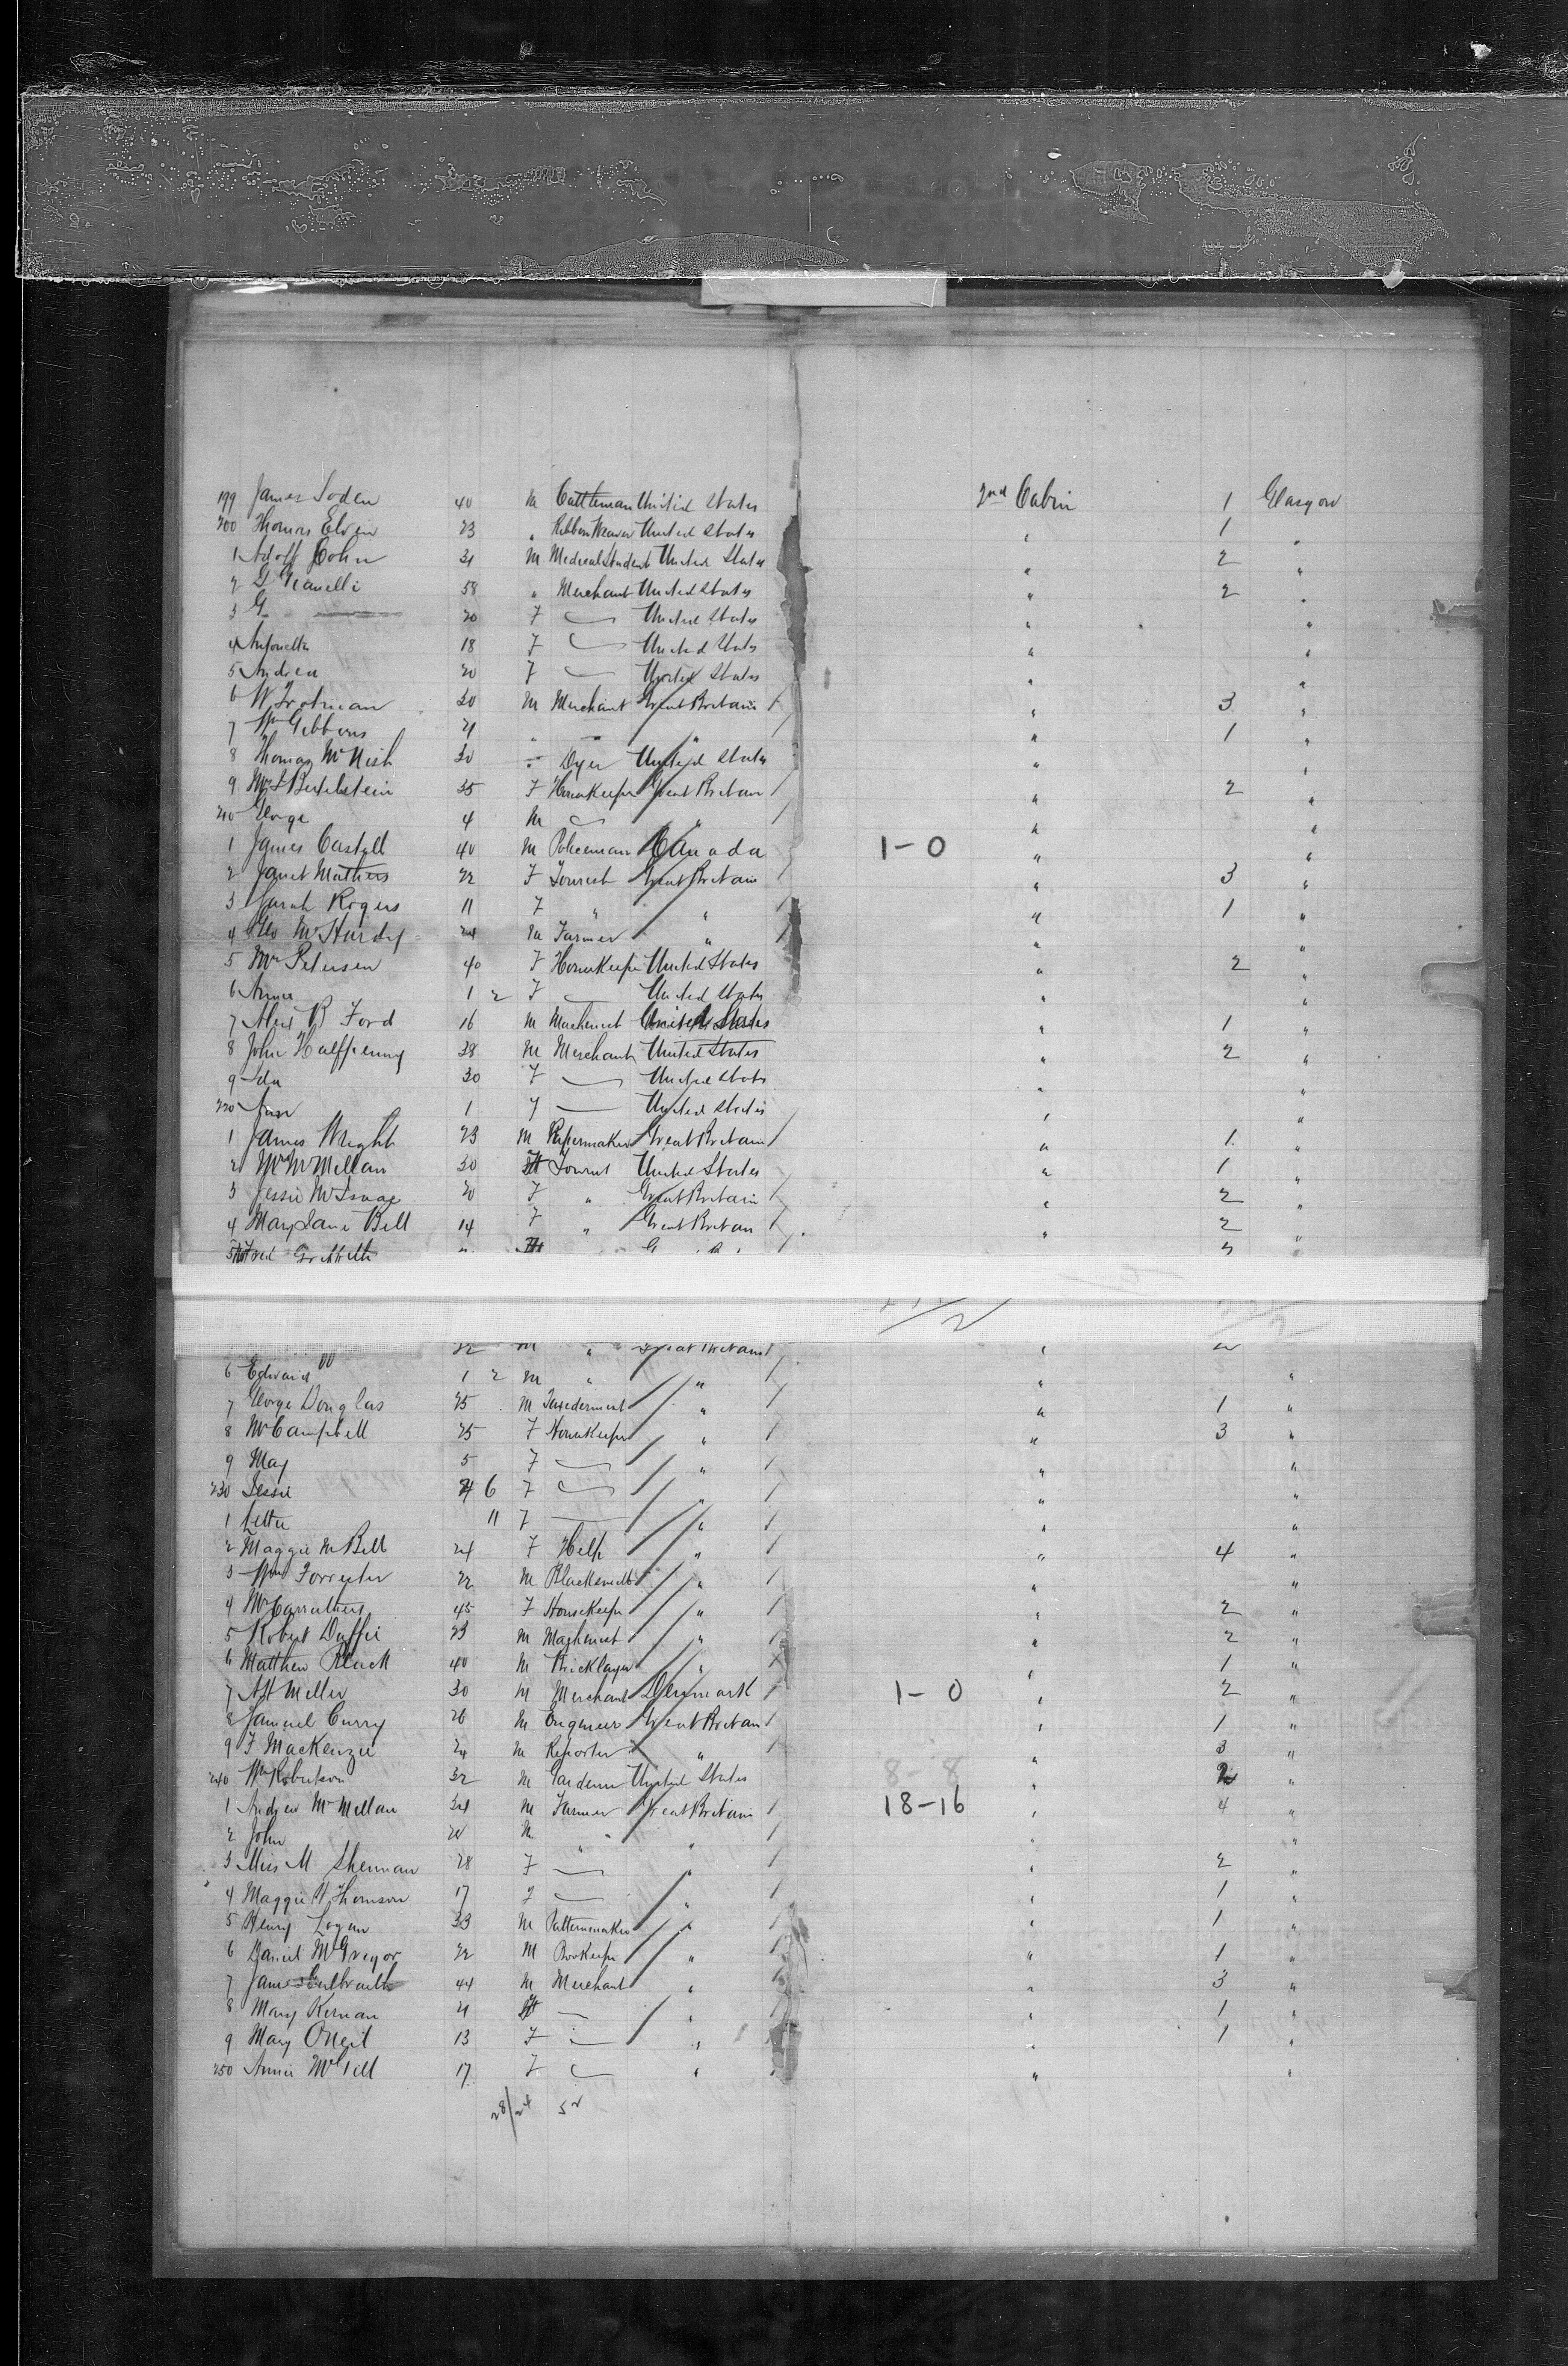 199 James Soden 40 M Cattleman United States 2nd Cabin 1 Glasgow
200 Thomas Elven 23 " Ribbon Weaver United States " 1 "
1 Adolf Cohn 31 M Medical Student United States " 2 "
2 G 58 " Merchant United States " 2 "
3 G — 20 F — United States " "
4 18 F — United States " "
5 Andrea 20 F — United States " "
6 W Trotman 30 M Merchant Great Britain / " 3 "
7 Wm Gibbons 21 " — " / " 1 "
8 Thomas McNish 30 " Dyer United States " "
9 35 F Housekeeper Great Britain / " 2 "
210 George 4 M — " / " "
1 James Castell 40 M Policeman Canada 1-0 " "
2 Janet Mathers 22 F Tourist Great Britain / " 3 "
3 Sarah Rogers 11 F " " / " 1 "
4 Geo McHardy 24 M Farmer " / " "
5 Mrs Petersen 40 F Housekeeper United States " 2 "
6 Annie 1 2 F — United States " "
7 Alex B Ford 16 M Machinist United States " 1 "
8 John Halfpenny 38 M Merchant United States " 2 "
9 Ida 30 F — United States " "
220 1 F — United States " "
1 James Wright 23 M Papermaker Great Britain / " 1 "
2 Mr McMillan 30 M Tourist United States " 1 "
3 Jessie 20 F " Great Britain / " 2 "
4 Mary Jane Bell 14 F " Great Britain / " 2 "
5 Griffith
22 M " Great Britain / "
6 Edward 1 2 M " " / " "
7 George Douglas 25 M Taxedermist " / " 1 "
8 Mrs Campbell 25 F Housekeeper " / " 3 "
9 May 5 F — " / " "
230 Jessie 6 F — " / " "
1 Lettie 11 F — " / " "
2 Maggie M Bell 24 F Help " / " 4 "
3 Wm Forrester 22 M Blacksmith " / " "
4 Mrs Carruthers 45 F Housekeeper " / " 2 "
5 Robert Duffie 23 M Machinist " / " 2 "
6 Matthew Black 40 M Bricklayer " / " 1 "
7 Miller 30 M Merchant Denmark / 1-0 " 2 "
8 Samuel Curry 26 M Engineer Great Britain / " 1 "
9 F MacKenzie 24 M Reporter " / " 3 "
240 Wm Robertson 32 M Gardener United States 8-8 " 2 "
1 Andrew McMillan 34 M Farmer Great Britain / 18-16 " 4 "
2 John 20 M " " / " "
3 Miss M Sherman 28 F — " / " 2 "
4 Maggie W Thomson 17 F — " / " 1 "
5 Henry Logan 33 M Patternmaker " / " 1 "
6 Daniel McGregor 22 M Bookeeper " / " 1 "
7 James Galbraith 44 M Merchant " / " 3 "
8 Mary Kernan 21 F — " / " 1 "
9 Mary ONeil 13 F — " / " 1 "
250 Annie McGill 17 F — " " "
28/24 52